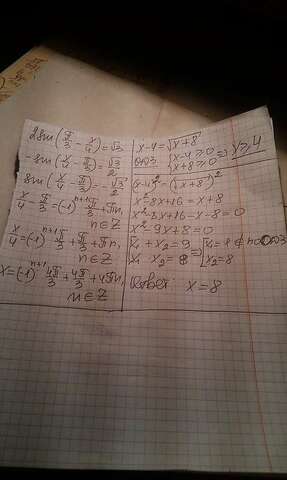 2sin(π/3 - x/4) = √3
-sin(x/4 - π/3) = √3/2
sin(x/4 - π/3) = -√3/2
x/4 - π/3 = (-1)^(n+1) π/3 + πn,
n∈Z
x/4 = (-1)^(n+1) π/3 + π/3 + πn,
n∈Z
x = (-1)^(n+1) 4π/3 + 4π/3 + 4πn,
n∈Z
x-4 = √(x+8)
ОДЗ {x-4≥0 x+8≥0 ⇒ x≥4
(x-4)² = (√(x+8))²
x²-8x+16 = x+8
x²-8x+16-x-8=0
x²-9x+8=0
x₁ + x₂ = 9
x₁ · x₂ = 8 ⇒ [x₁ = 8 ∉ по ОДЗ
x₂ = 8
Ответ: x = 8